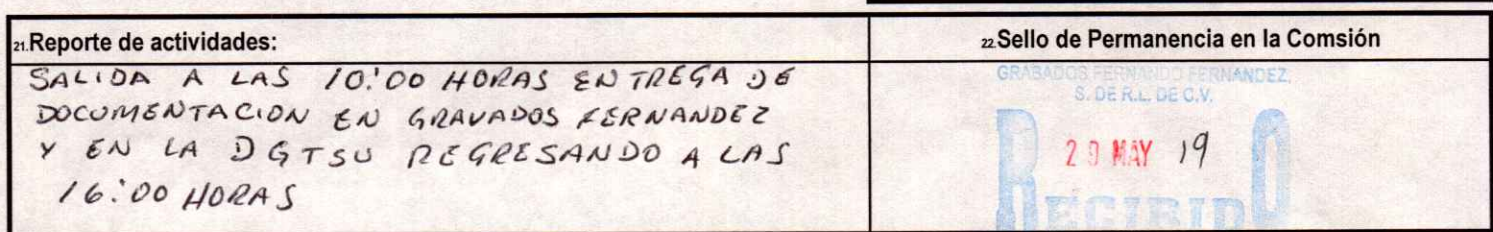 21.Reporte de actividades:
SALIDA A LAS 10:00 HORAS ENTREGA DE
DOCUMENTACION EN GRAVADOS FERNANDEZ
Y EN LA DGTSU REGRESANDO A LAS
16:00 HORAS
22.Sello de Permanencia en la Comsión
GRABADOS FERNANDO FERNANDEZ,
S. DE R.L. DE C.V.
29 MAY 19
RECIBIDO